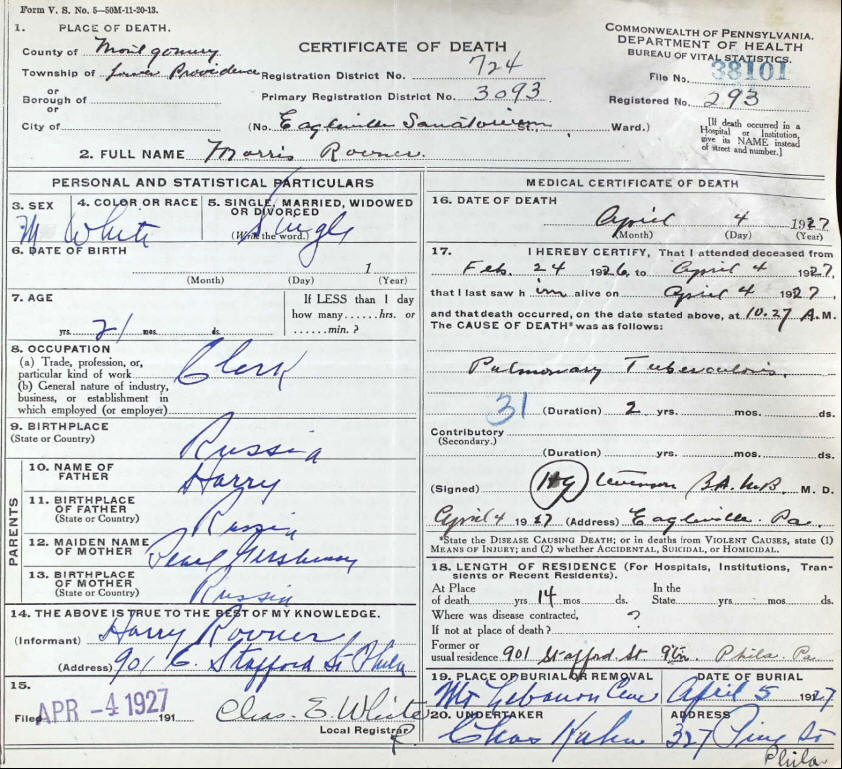 Form V. S. No. 5—50M-11-20-13.
1. PLACE OF DEATH.
County of Montgomery
Township of Lower Providence
or
Borough of
or
City of
CERTIFICATE OF DEATH
Registration District No. 724
Primary Registration District No. 3093
(No. Eagleville Sanatorium St., Ward.)
COMMONWEALTH OF PENNSYLVANIA.
DEPARTMENT OF HEALTH
BUREAU OF VITAL STATISTICS.
File No. 38101
Registered No. 293
[If death occurred in a
Hospital or Institution,
give its NAME instead
of street and number.]
2. FULL NAME Morris Rovner.
PERSONAL AND STATISTICAL PARTICULARS
3. SEX M
4. COLOR OR RACE White
5. SINGLE, MARRIED, WIDOWED
OR DIVORCED
(Write the word.) Single
6. DATE OF BIRTH
1
(Month) (Day) (Year)
7. AGE
21 yrs. mos. ds.
If LESS than 1 day
how many......hrs. or
......min. ?
8. OCCUPATION
(a) Trade, profession, or,
particular kind of work Clerk
(b) General nature of industry,
business, or establishment in
which employed (or employer)
9. BIRTHPLACE
(State or Country) Russia
PARENTS
10. NAME OF
FATHER Harry
11. BIRTHPLACE
OF FATHER
(State or Country) Russia
12. MAIDEN NAME
OF MOTHER Pearl
13. BIRTHPLACE
OF MOTHER
(State or Country) Russia
14. THE ABOVE IS TRUE TO THE BEST OF MY KNOWLEDGE.
(Informant) Harry Rovner
(Address) 901 E. Stafford St Phila
15.
Filed APR -4 1927 191 Chas. E. White
Local Registrar
MEDICAL CERTIFICATE OF DEATH
16. DATE OF DEATH
April 4 1927
(Month) (Day) (Year)
17. I HEREBY CERTIFY, That I attended deceased from
Feb. 24 1926, to April 4 1927,
that I last saw him alive on April 4 1927,
and that death occurred, on the date stated above, at 10.27 A.M.
The CAUSE OF DEATH* was as follows:
Pulmonary Tuberculosis.
31 (Duration) 2 yrs. mos. ds.
Contributory
(Secondary.)
(Duration) yrs. mos. ds.
(Signed) Levenson B.A. M.B. M. D.
April 4 1927 (Address) Eagleville Pa.
*State the DISEASE CAUSING DEATH; or in deaths from VIOLENT CAUSES, state (1)
MEANS OF INJURY; and (2) whether ACCIDENTAL, SUICIDAL, or HOMICIDAL.
18. LENGTH OF RESIDENCE (For Hospitals, Institutions, Tran-
sients or Recent Residents).
At Place In the
of death yrs 14 mos. ds. State yrs. mos. ds.
Where was disease contracted, ?
If not at place of death?
Former or
usual residence 901 Stafford St Phila. Pa.
19. PLACE OF BURIAL OR REMOVAL DATE OF BURIAL
Mt Lebanon Cem April 5 1927
20. UNDERTAKER ADDRESS
Chas Kahn 327 Pine St
Phila